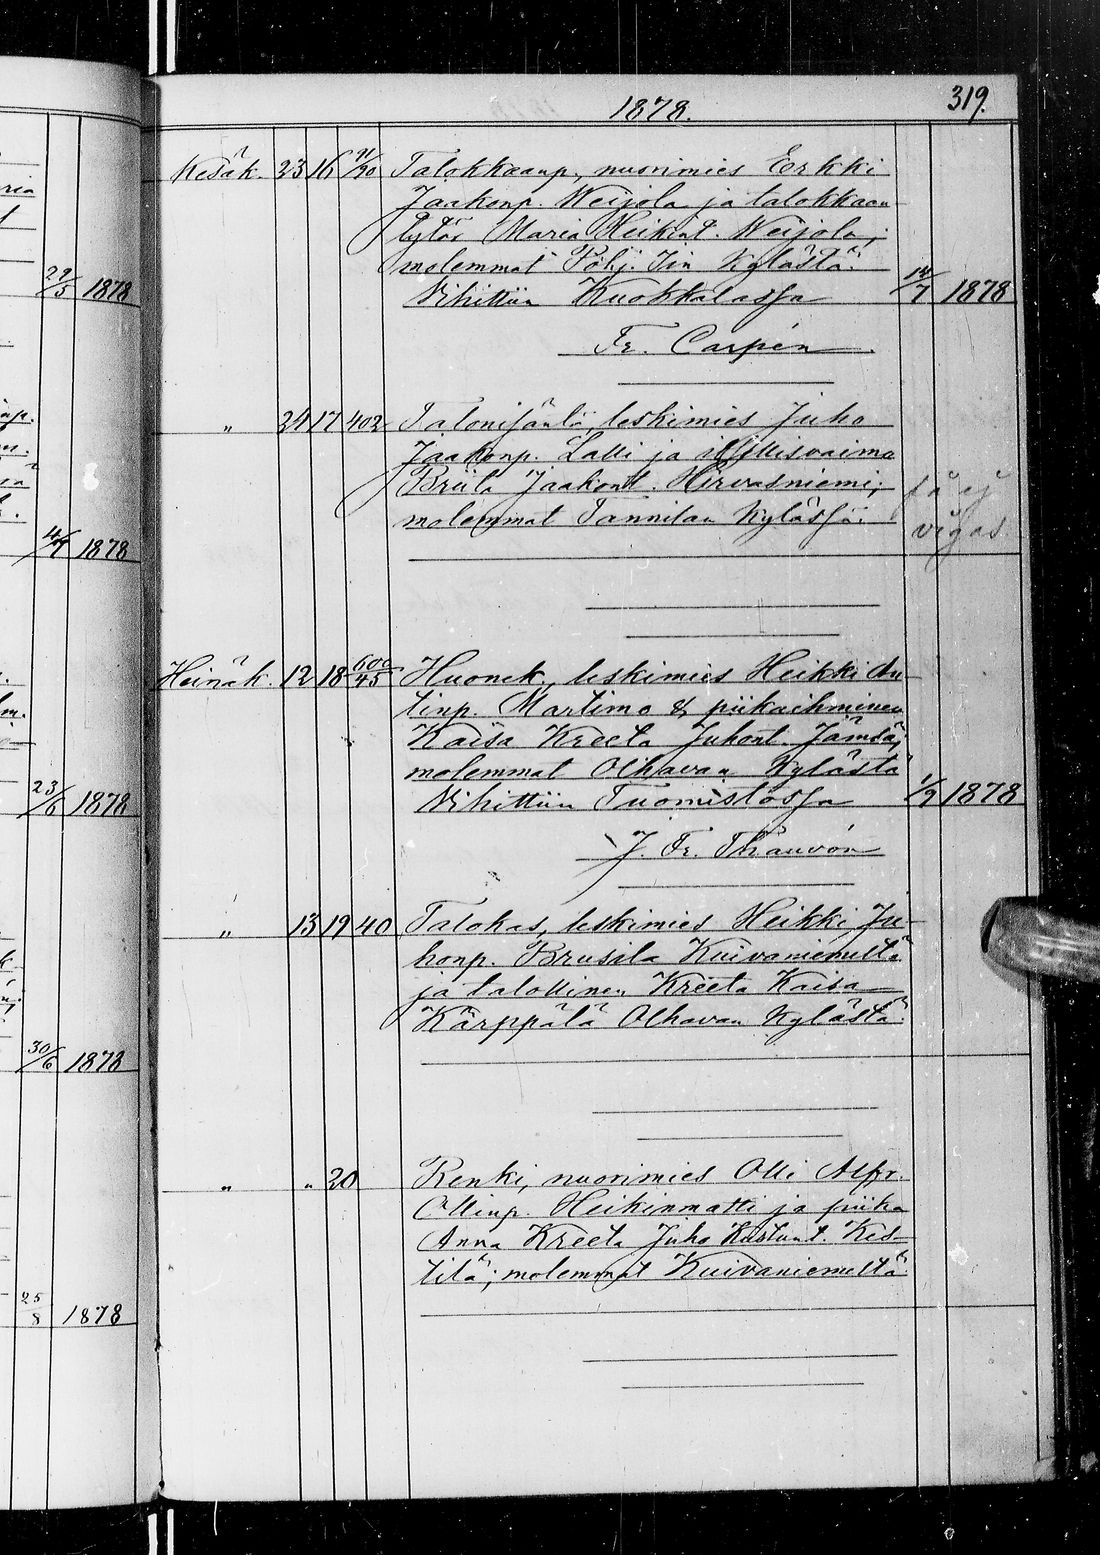 1878.
319.
Kesäk. 23 16 91/90 Talokkaanp., nuorimies Erkki
Jaakonp. Weijola ja talokkaan
tytär Maria Heikint. Weijola;
molemmat Pohj. Iin kylästä.
Vihittiin Kuokkalassa 14/7 1878
Fr. Carpén
" 24 17 402 Talonisäntä, leskimies Juho
Jaakonp. Lalli ja
Briita Jaakont. Hirvasniemi;
molemmat Tannilan kylässä.
få ej
vigas
Heinäk. 12 18 600/45 Huonek., leskimies Heikki An-
tinp. Martimo & piikaihminen
Kaisa Kreeta Juhont. Jämsä;
molemmat Olhavan kylästä
Vihittiin Tuomistossa 1/9 1878
J. Fr. Thauvón
" 13 19 40 Talokas, leskimies Heikki Ju-
honp. Brusila Kuivaniemeltä
ja talollinen Kreeta Kaisa
Kärppälä Olhavan kylästä.
" " 20 Renki, nuorimies Olli Alfr.
Ollinp. Heikinmatti ja piika
Anna Kreeta Juho Kustant. Kes-
tilä; molemmat Kuivaniemeltä.
22/5 1878
4/7 1878
23/6 1878
30/6 1878
25/8 1878